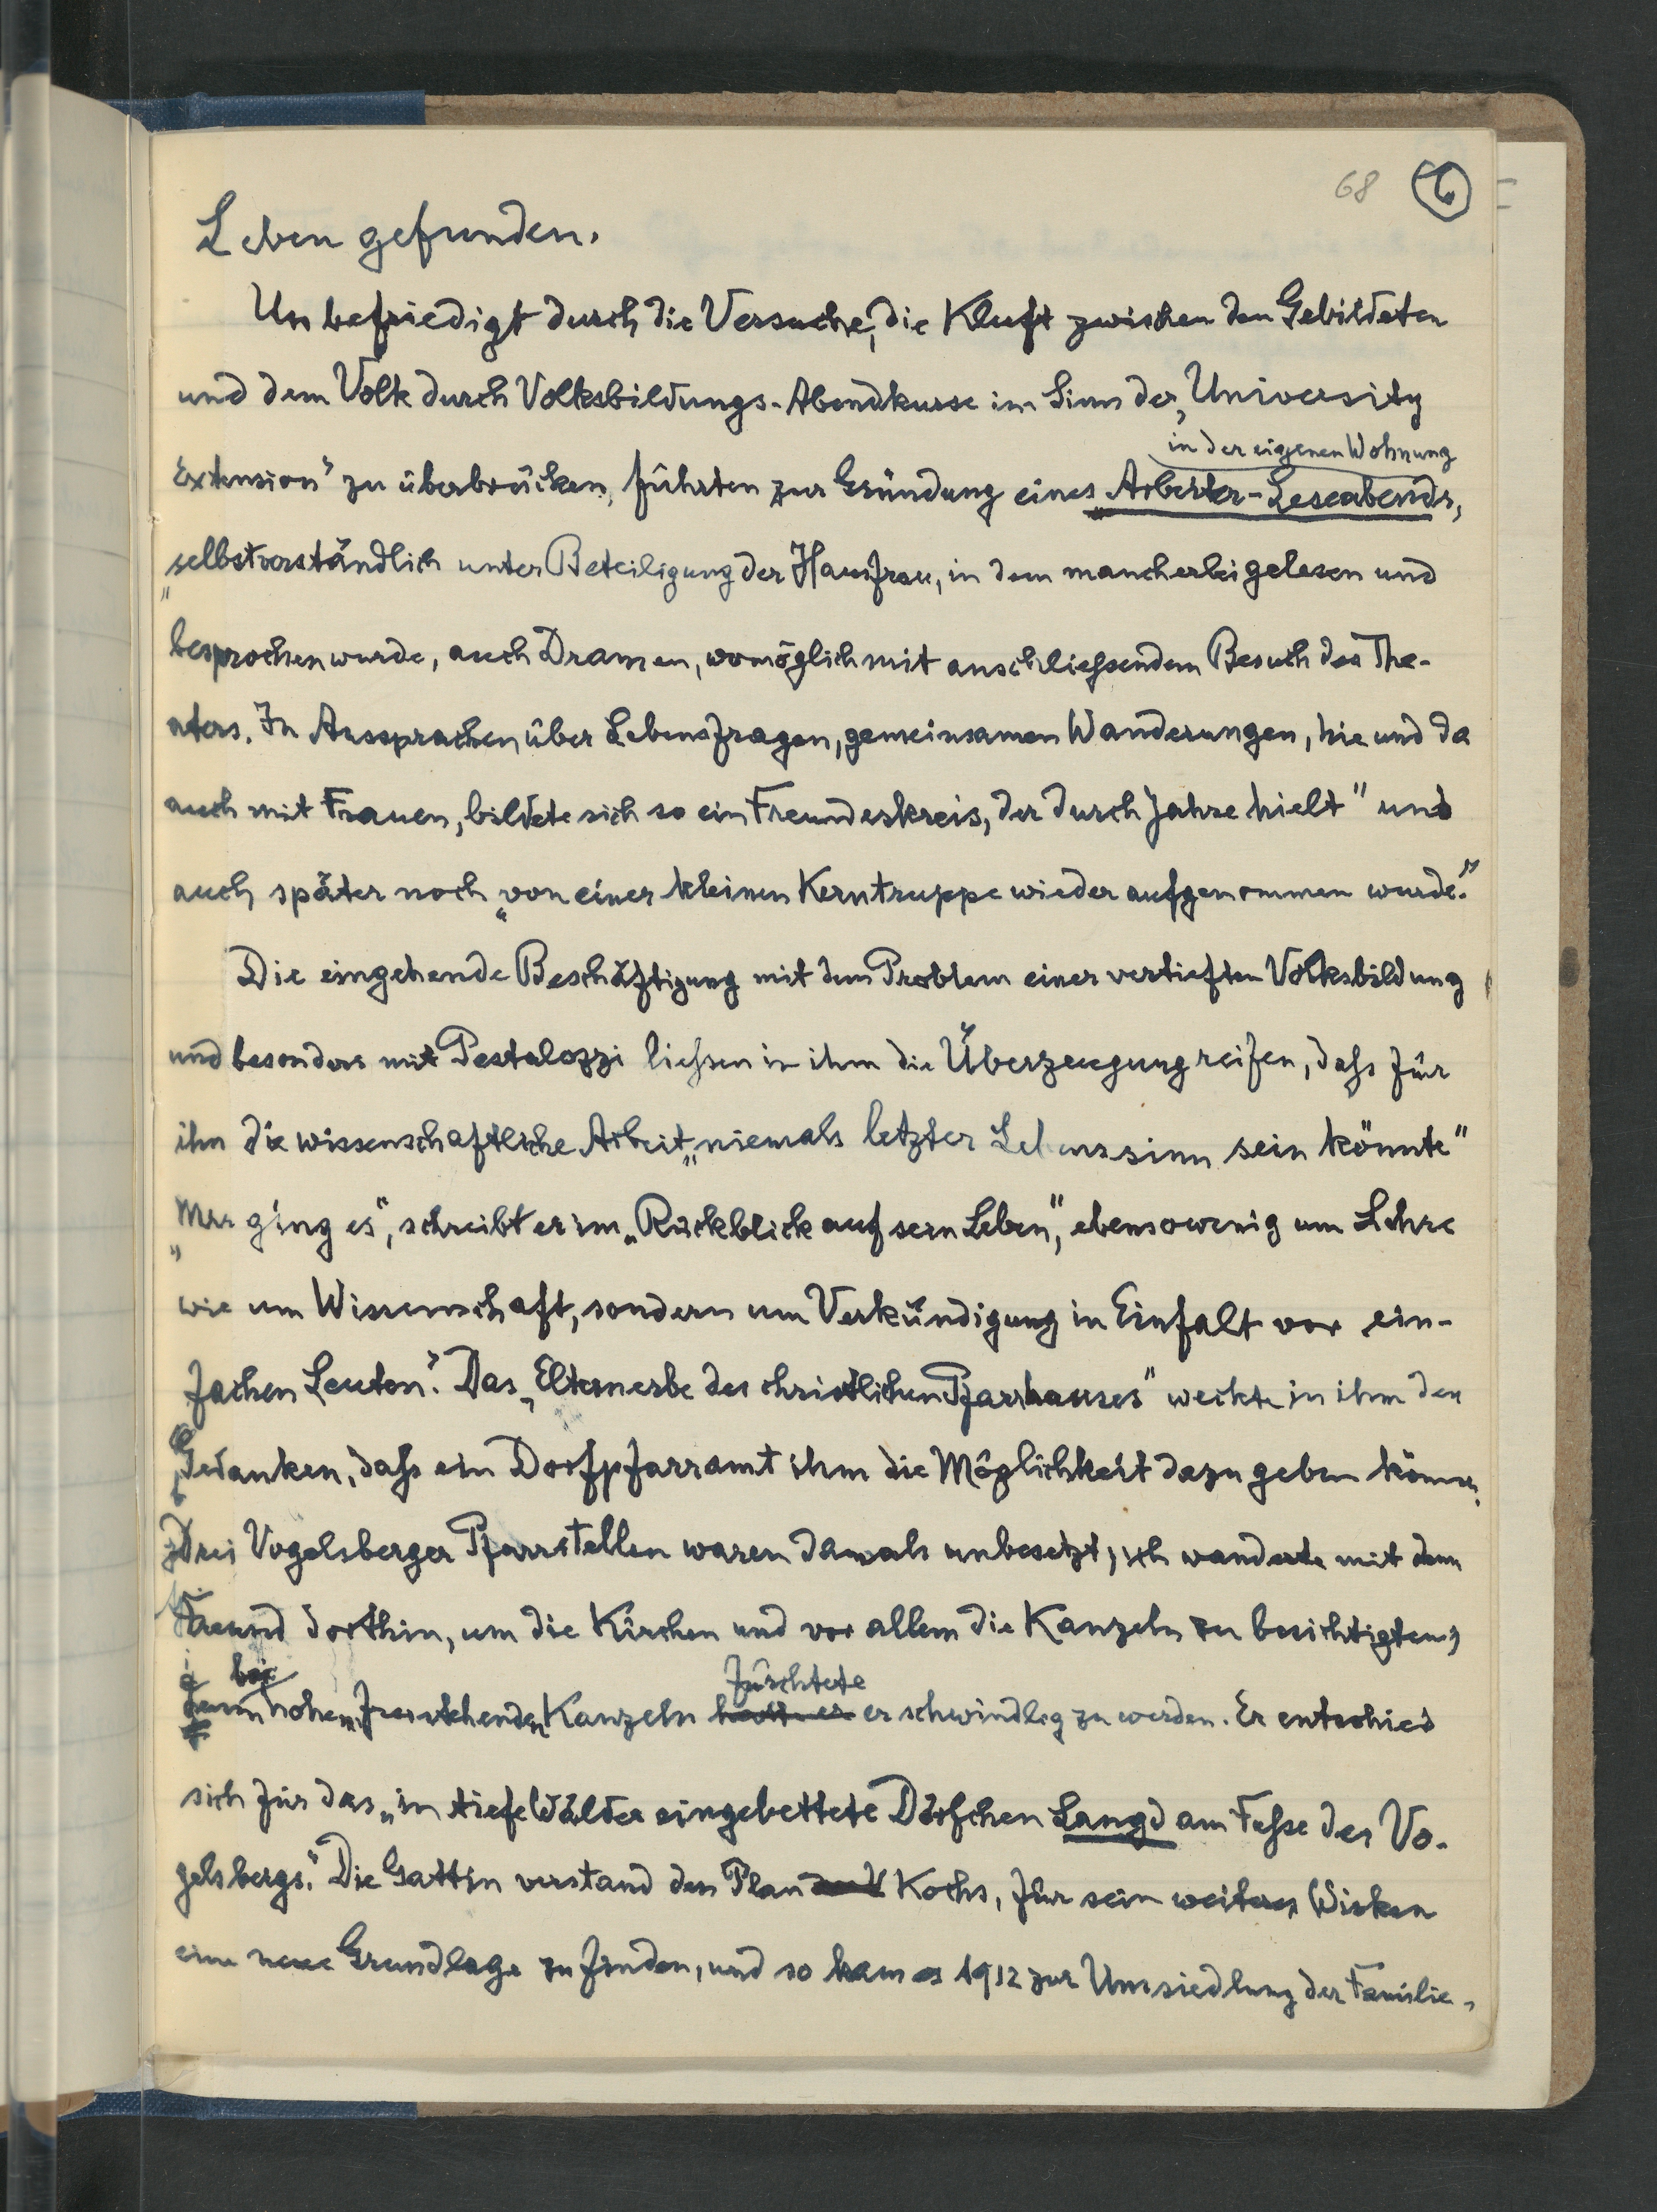 68 6
Leben gefunden.
Unbefriedigt durch die Versuche, die Kluft zwischen den Gebildeten
und dem Volk durch Volksbildungs-Abendkurse im Sinn der „University
in der eigenen Wohnung
Extension“ zu überbrücken, führten zur Gründung eines „Arbeiter-Leseabends,
„selbstverständlich unter Beteiligung der Hausfrau, in dem mancherlei gelesen und
besprochen wurde, auch Dramen, womöglich mit anschliessendem Besuch des The-
aters. In Aussprachen über Lebensfragen, gemeinsamen Wanderungen, hie und da
auch mit Frauen, bildete sich so ein Freundeskreis, der durch Jahre hielt“ und
auch später noch „von einer kleinen Kerntruppe wieder aufgenommen wurde.“
Die eingehende Beschäftigung mit dem Problem einer vertieften Volksbildung
und besonders mit Pestalozzi liessen in ihm die Überzeugung reifen, dass für
ihn die wissenschaftliche Arbeit „niemals letzter Lebenssinn sein könnte“
„Mir ging es“, schreibt er im „Rückblick auf sein Leben“, ebensowenig um Lehre
wie um Wissenschaft, sondern um Verkündigung in Einfalt vor ein-
fachen Leuten.“ Das „Elternerbe des christlichen Pfarrhauses“ weckte in ihm den
Gedanken, dass ein Dorfpfarramt ihm die Möglichkeit dazu geben könne.
Drei Vogelsberger Pfarrstellen waren damals unbesetzt; ich wanderte mit dem
Freund dorthin, um die Kirchen und vor allem die Kanzeln zu besichtigten;
bei fürchtete
denn hohen, freistehenden Kanzeln er schwindlig zu werden. Er entschied
sich für das „in tiefe Wälder eingebettete Dörfchen Langd am Fusse des Vo-
gelsbergs.“ Die Gattin verstand den Plan Kochs, für sein weiteres Wirken
eine neue Grundlage zu finden, und so kam es 1912 zur Umsiedlung der Familie,